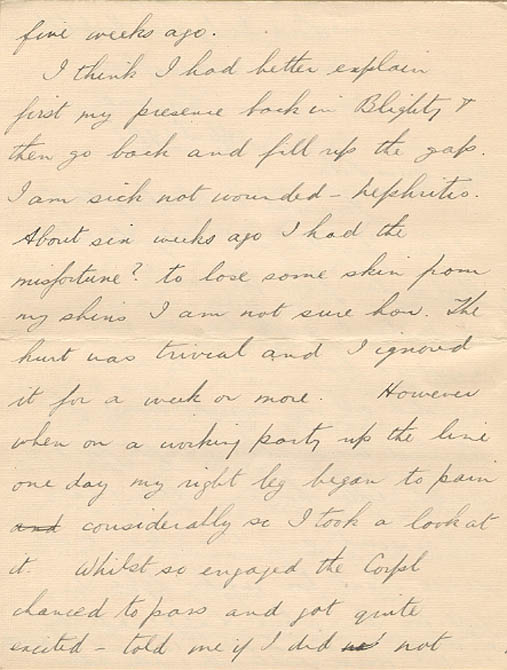 five weeks ago.
I think I had better explain
first my presence back in Blighty &
then go back and fill up the gap.
I am sick not wounded - nephritis.
About six weeks ago I had the
misfortune? to lose some skin from
my shins I am not sure how. The
hurt was trivial and I ignored
it for a week or more. However
when on a working party up the line
one day my right leg began to pain
and considerably so I took a look at
it. Whilst so engaged the Corpl
chanced to pass and got quite
excited - told me if I did not